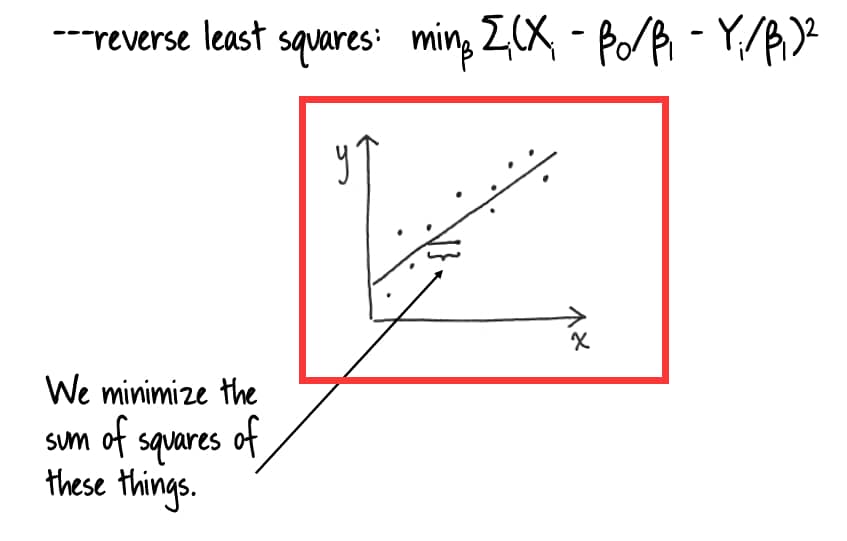 ---reverse least squares: min_β Σ_i(X_i - β_0/β_1 - Y_i/β_1)²
y
x
We minimize the
sum of squares of
these things.